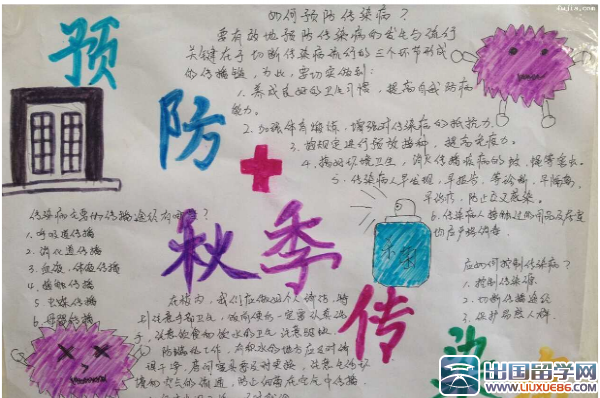 dujia.com
如何预防传染病？
要有效地预防传染病的发生与流行
关键在于切断传染病流行的三个环节形成
的传播链，为此，要切实做到：
1.养成良好的卫生习惯，提高自我防病
能力。
2.加强体育锻炼，增强对传染病的抵抗力。
3.按规定进行预防接种，提高免疫力。
4.搞好环境卫生，消灭传播疾病的蚊、蝇等害虫。
5.传染病人早发现，早报告，早诊断，早隔离，
早治疗，防止交叉感染。
6.传染病人接触过的用品及居室
均应严格消毒
预
防
秋季
传
染
传染病主要的传播途径有哪些？
1.呼吸道传播
2.消化道传播
3.血液、体液传播
4.接触传播
5.虫媒传播
6.母婴传播
应如何控制传染病？
1.控制传染源
2.切断传播途径
3.保护易感人群
在校内，我们应做好个人清洁，特
别注意手部卫生，
手，注意饮食和饮水的卫生
出国留学网
www.liuxue86.com